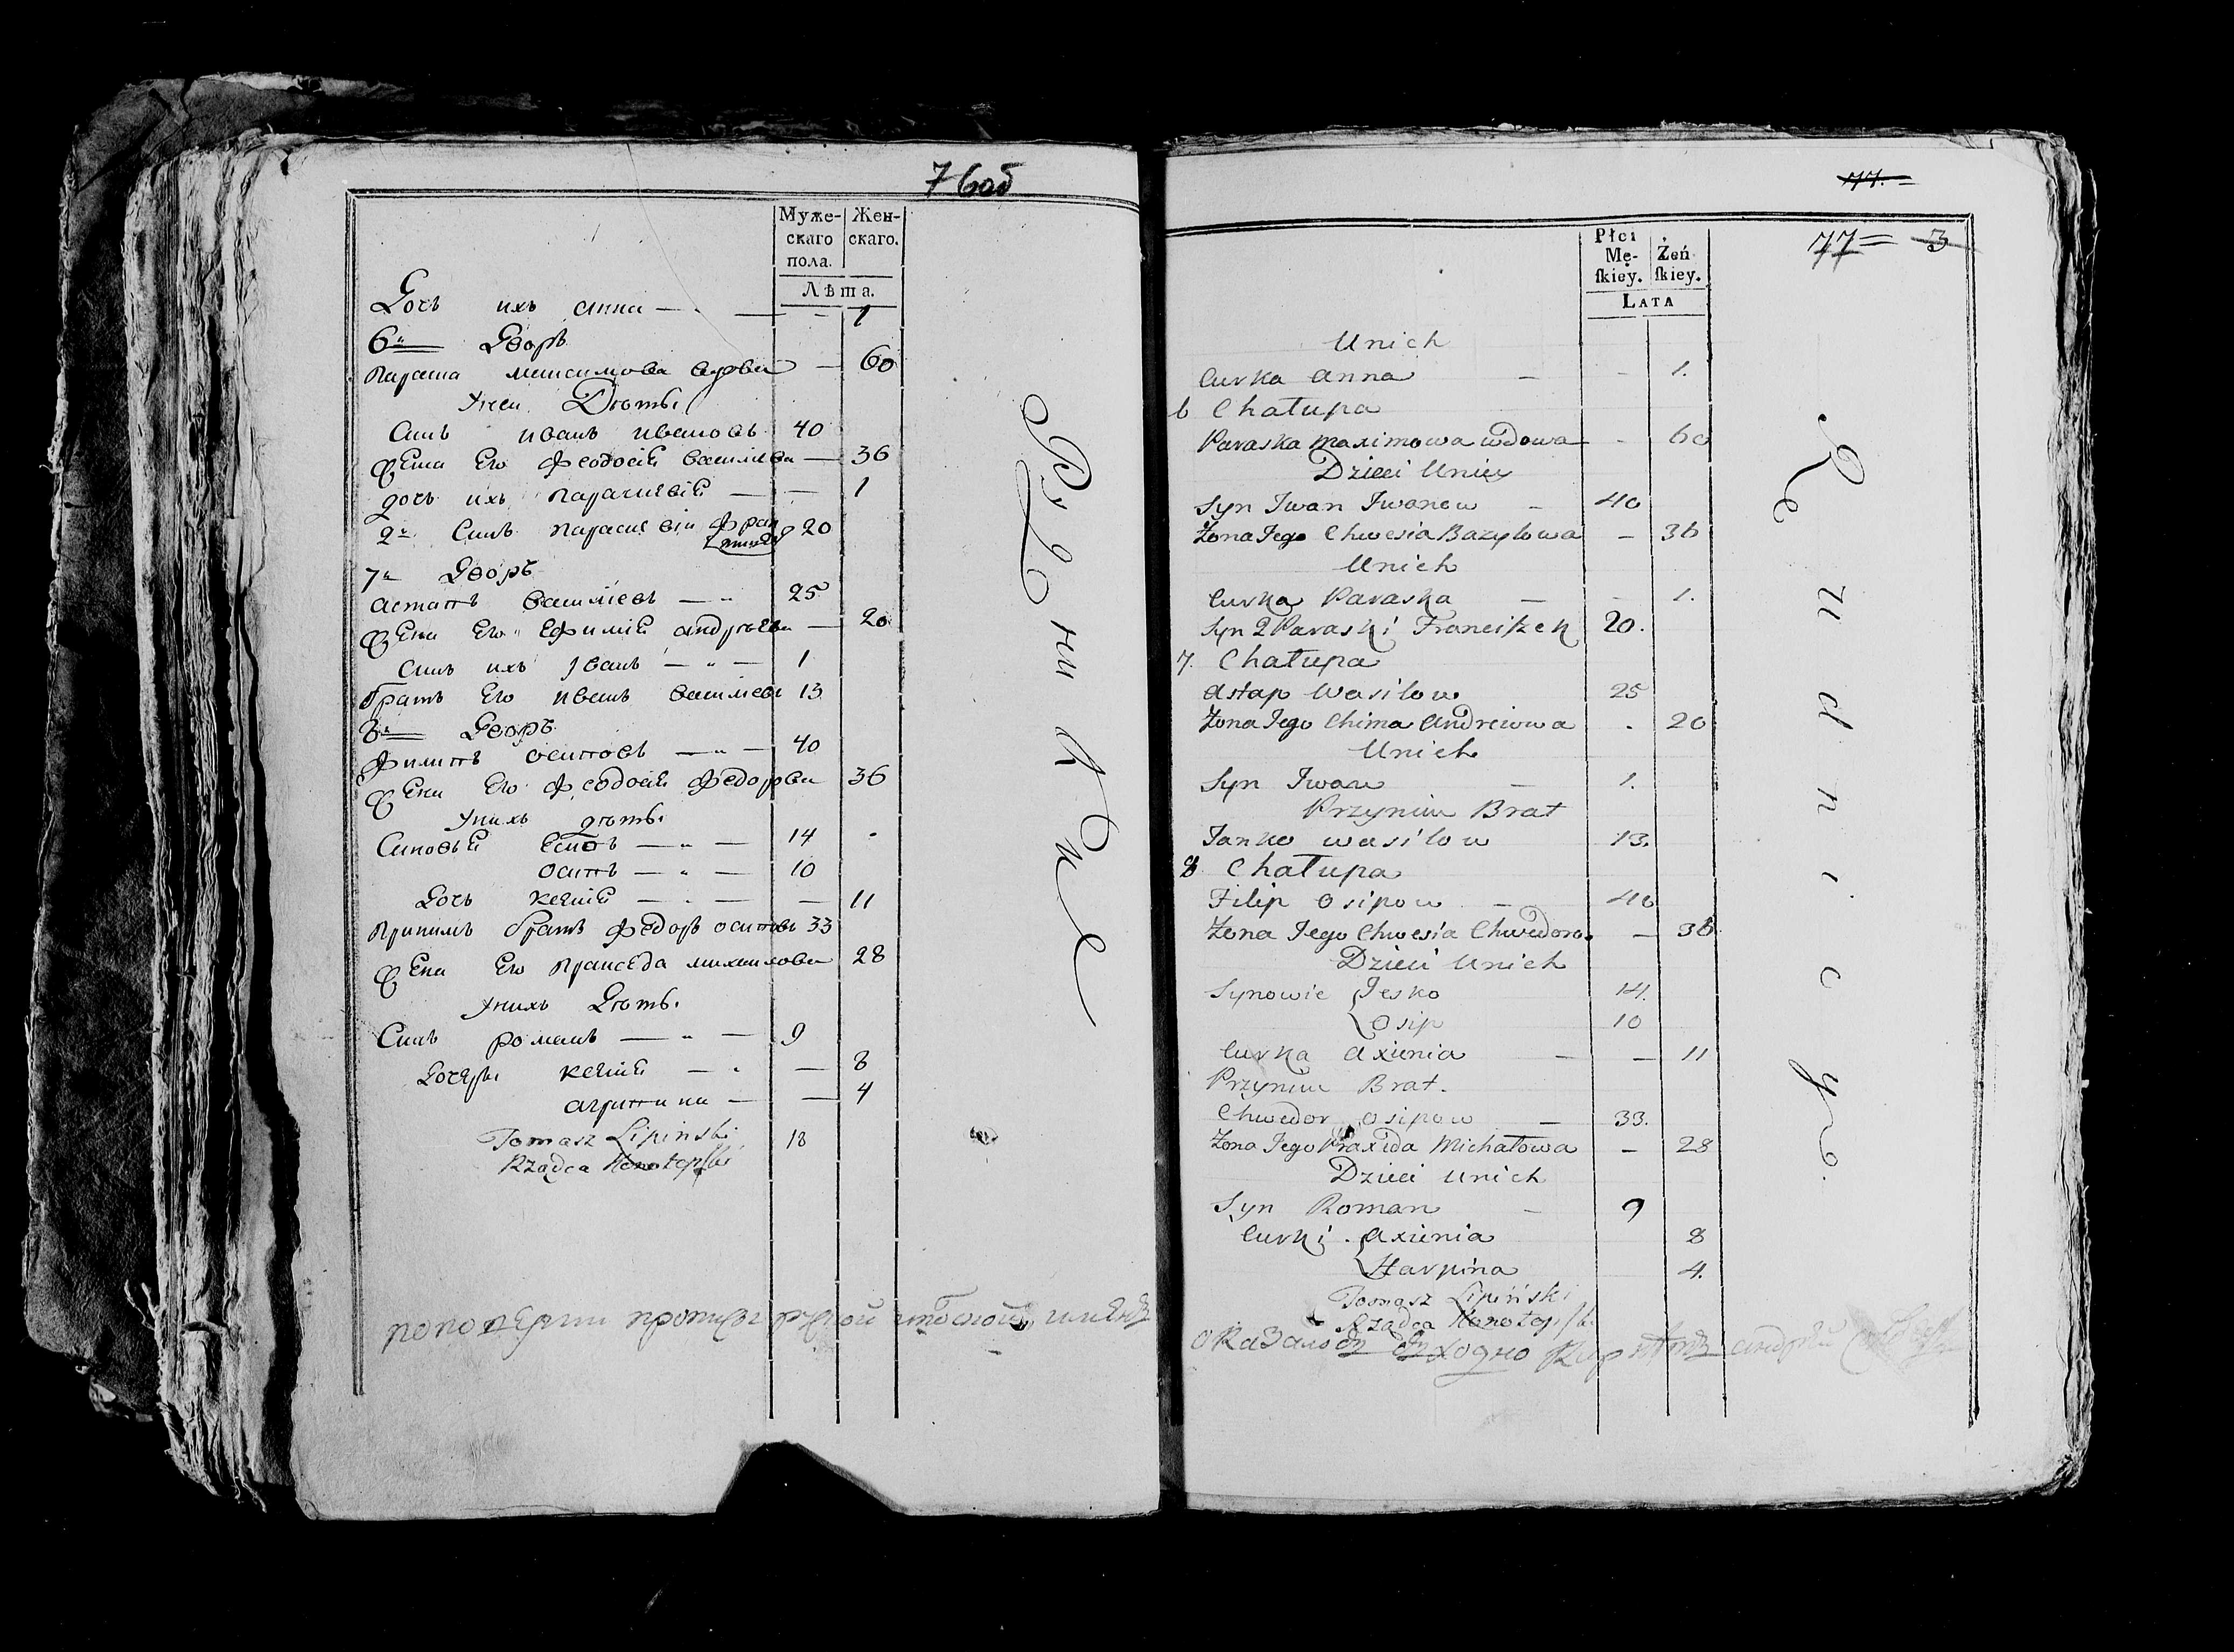 76об
Муже- Жен-
скаго скаго.
пола.
Лѣта.
Дочь ихъ анна — — 1
6й Дворъ
параска максимова вдова — 60
Унеи Дѣти
Сынъ иванъ ивановъ 40
Жена Его Феодосія василева — 36
дочь ихъ параскевія — — 1
2й Сынъ параскевіи Фран
цишекъ 20
7й Дворъ
астапъ василіевъ — 25
Жена Его Ефимія андрѣева — 20
Сынъ ихъ иванъ — 1
братъ Его иванъ василіевъ 13
8й Дворъ
Филипъ осиповъ — 40
Жена Его Феодосія Федорова 36
Унихъ дѣти
Сыновья Есипъ — 14
осипъ — 10
Дочь ксенія — — 11
Принимъ братъ Федоръ осиповъ 33
Жена Его Пракседа михаилова 28
Унихъ Дѣти
Сынъ романъ — 9
Дочери ксенія — — 8
агрипина — — 4
Tomasz Lipinski 18
Rządca Konotopski
Рудники
77.
77= 3
Płci
Mę- Żeń
ſkiey. ſkiey.
LATA
Unich
Curka Anna — - 1.
6 Chałupa
Paraska Maximowa wdowa - 60
Dzieci Uniey
Syn Iwan Iwanow - 40
Żona Jego Chwesia Bazylowa — 36
Unich
Curka Paraska — - 1.
Syn 2 Paraski Franciszek 20.
7. Chałupa
Astap Wasilow 25
Żona Jego Chima Andreiowa . 20
Unich
Syn Iwan — 1.
Przynim Brat
Janko Wasilow 13.
8 Chałupa
Filip Osipow — 40
Żona Jego Chwesia Chwedoro. — 36
Dzieci Unich
Synowie Jesko 14.
Osip 10
Curka Axienia — — 11
Przynim Brat.
Chwedor Osipow — 33.
Żona Jego Praxeda Michałowa — 28
Dzieci Unich
Syn Roman — 9
Curki Axienia 8
Harpina 4.
Tomasz Lipiński
Rządca Konotopſki
Rudnicy